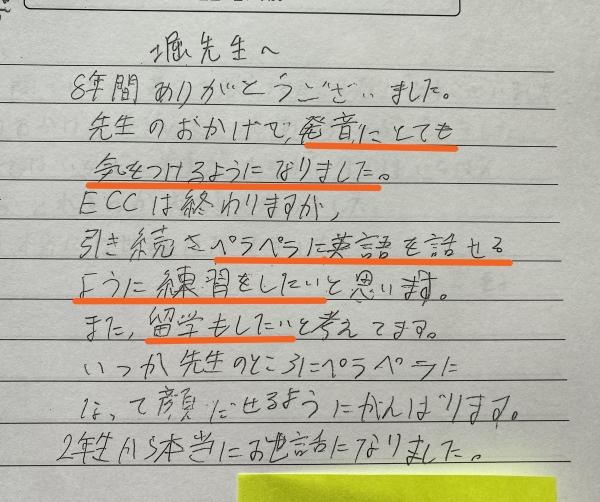 堀先生へ
8年間ありがとうございました。
先生のおかげで、発音にとても
気をつけるようになりました。
ECCは終わりますが、
引き続きペラペラに英語を話せる
ように練習をしたいと思います。
また、留学もしたいと考えてます。
いつか先生のところにペラペラに
なって顔だせるようにがんばります。
2年生から本当にお世話になりました。